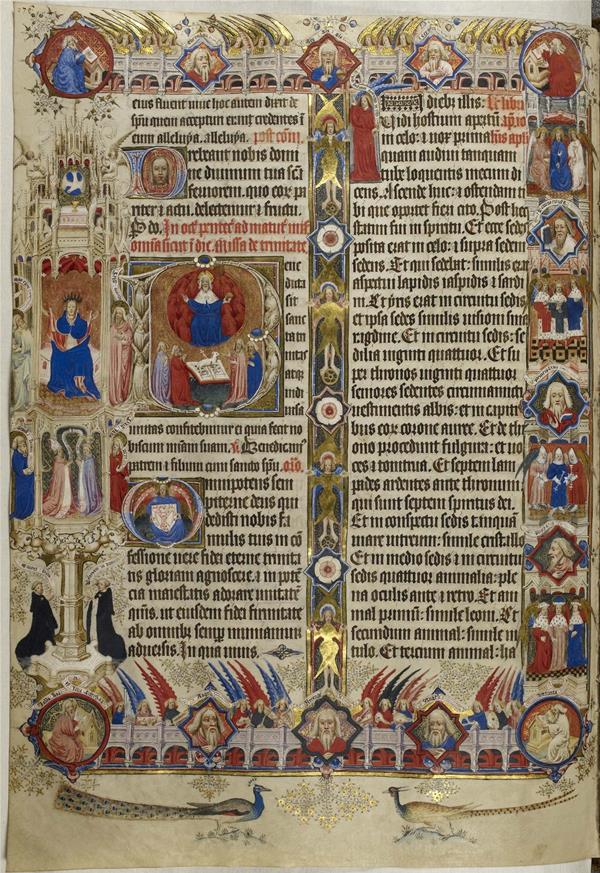 276
eius fluent uiue hoc autem dixit de
spū quem accepturi erant credentes ī
eum alleluya. alleluya. post cōm̄.
Prebeant nobis domi
ne diuinum tua scā
feruorem. quo eor pa
riter & actu. delectemur & fructu.
In oct' pentec' ad matut' miss'
omnia sicut ī die. Missa de trinitate.
Bene
dicta
sit
sanc
ta tri
nitas
atq̄
indi
uisa
unitas confitebimur ei quia fecit no
biscum misericordiam suam. Benedicam'
patrem & filium cum sancto spū. or̄o.
Omnipotens sem
piterne deus qui
dedisti nobis fa
mulis tuis in cō
fessione uere fidei eterne trinita
tis gloriam agnoscere. & in potē
cia maiestatis adorare unitatē
qs̄. ut eiusdem fidei firmitate
ab omnibȝ semꝑ muniamur
aduersis. In qua uiuis.
In diebȝ illis: Lc̄ libri
Uidi hostium apertū
in celo: & uox prima
quam audiui tanquam
tube loquentis mecum di
cens. Ascende huc: & ostendam ti
bi que oportet fieri cito. Post hec
statim fui in spiritu. Et ecce sedes
posita erat in celo: & supra sedem
sedens. Et qui sedebat: similis erat
aspectui lapidis iaspidis & sardi
ni. Et yris erat in circuitu sedis
et ipsa sedes similis uisioni sma
ragdine. Et in circuitu sedis: se
dilia uiginti quattuor. Et su
per thronos uiginti quattuor
seniores sedentes circumamicti
uestimentis albis: et in capiti
bus eor corone auree. Et de thr
ono procedunt fulgura: et uo
ces & tonitrua. Et septem lam
pades ardentes ante thronum
qui sunt septem spiritus dei.
Et in conspectu sedis tanquā
mare uitreum: simile cristallo
Et in medio sedis & in circuitu
sedis quattuor animalia: ple
na oculis ante & retro. Et ani
mal primū: simile leoni. Et
secundum animal: simile ui
tulo. Et tercium animal: ha